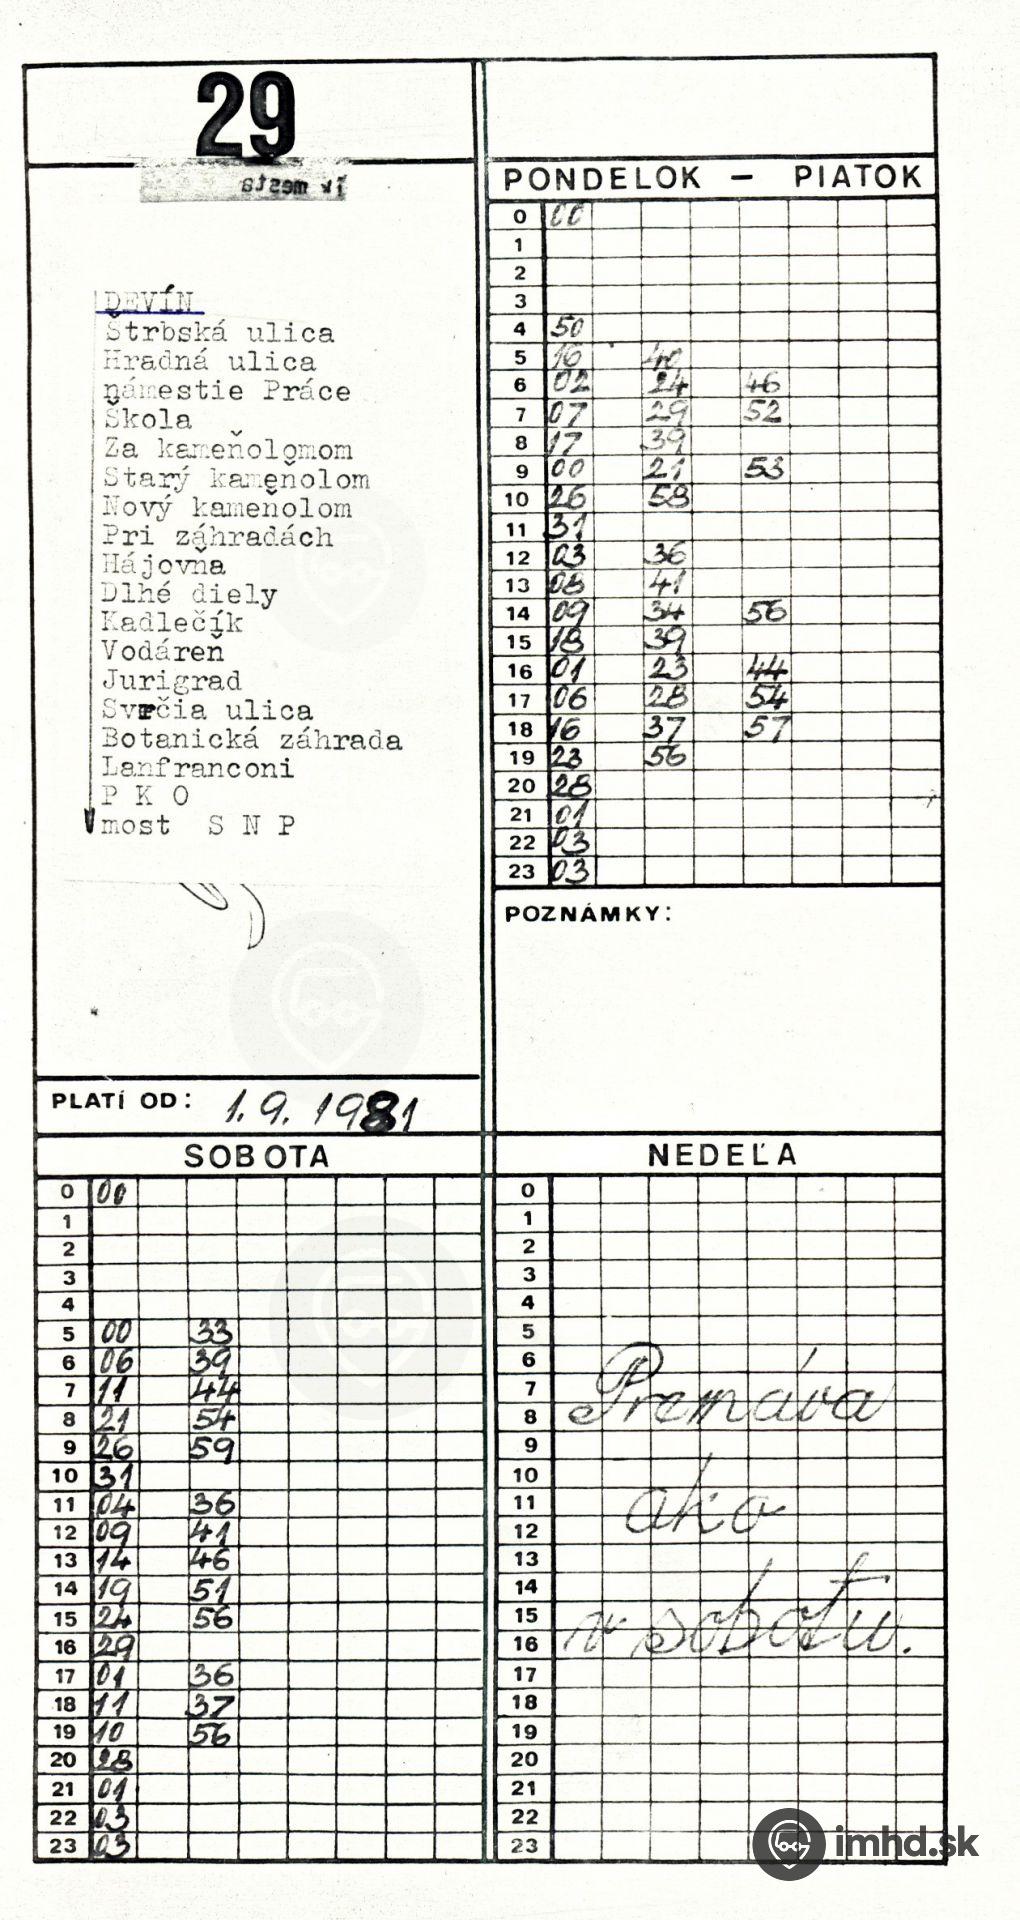 29
PONDELOK - PIATOK
DEVÍN
Štrbská ulica
Hradná ulica
námestie Práce
Škola
Za kameňolomom
Starý kameňolom
Nový kameňolom
Pri záhradách
Hájovňa
Dlhé diely
Kadlečík
Vodáreň
Jurigrad
Svrčia ulica
Botanická záhrada
Lanfranconi
P K O
most S N P
PLATÍ OD: 1.9.1981
0 00
1
2
3
4 50
5 16 40
6 02 24 46
7 07 29 52
8 17 39
9 00 21 53
10 26 58
11 31
12 03 36
13 08 41
14 09 34 56
15 18 39
16 01 23 44
17 06 28 54
18 16 37 57
19 23 56
20 28
21 01
22 03
23 03
POZNÁMKY:
SOBOTA
0 00
1
2
3
4
5 00 33
6 06 39
7 11 44
8 21 54
9 26 59
10 31
11 04 36
12 09 41
13 14 46
14 19 51
15 24 56
16 29
17 01 36
18 11 37
19 10 56
20 28
21 01
22 03
23 03
NEDEĽA
0
1
2
3
4
5
6
7
8
9
10
11
12
13
14
15
16
17
18
19
20
21
22
23
Premáva
ako
v sobotu.
imhd.sk